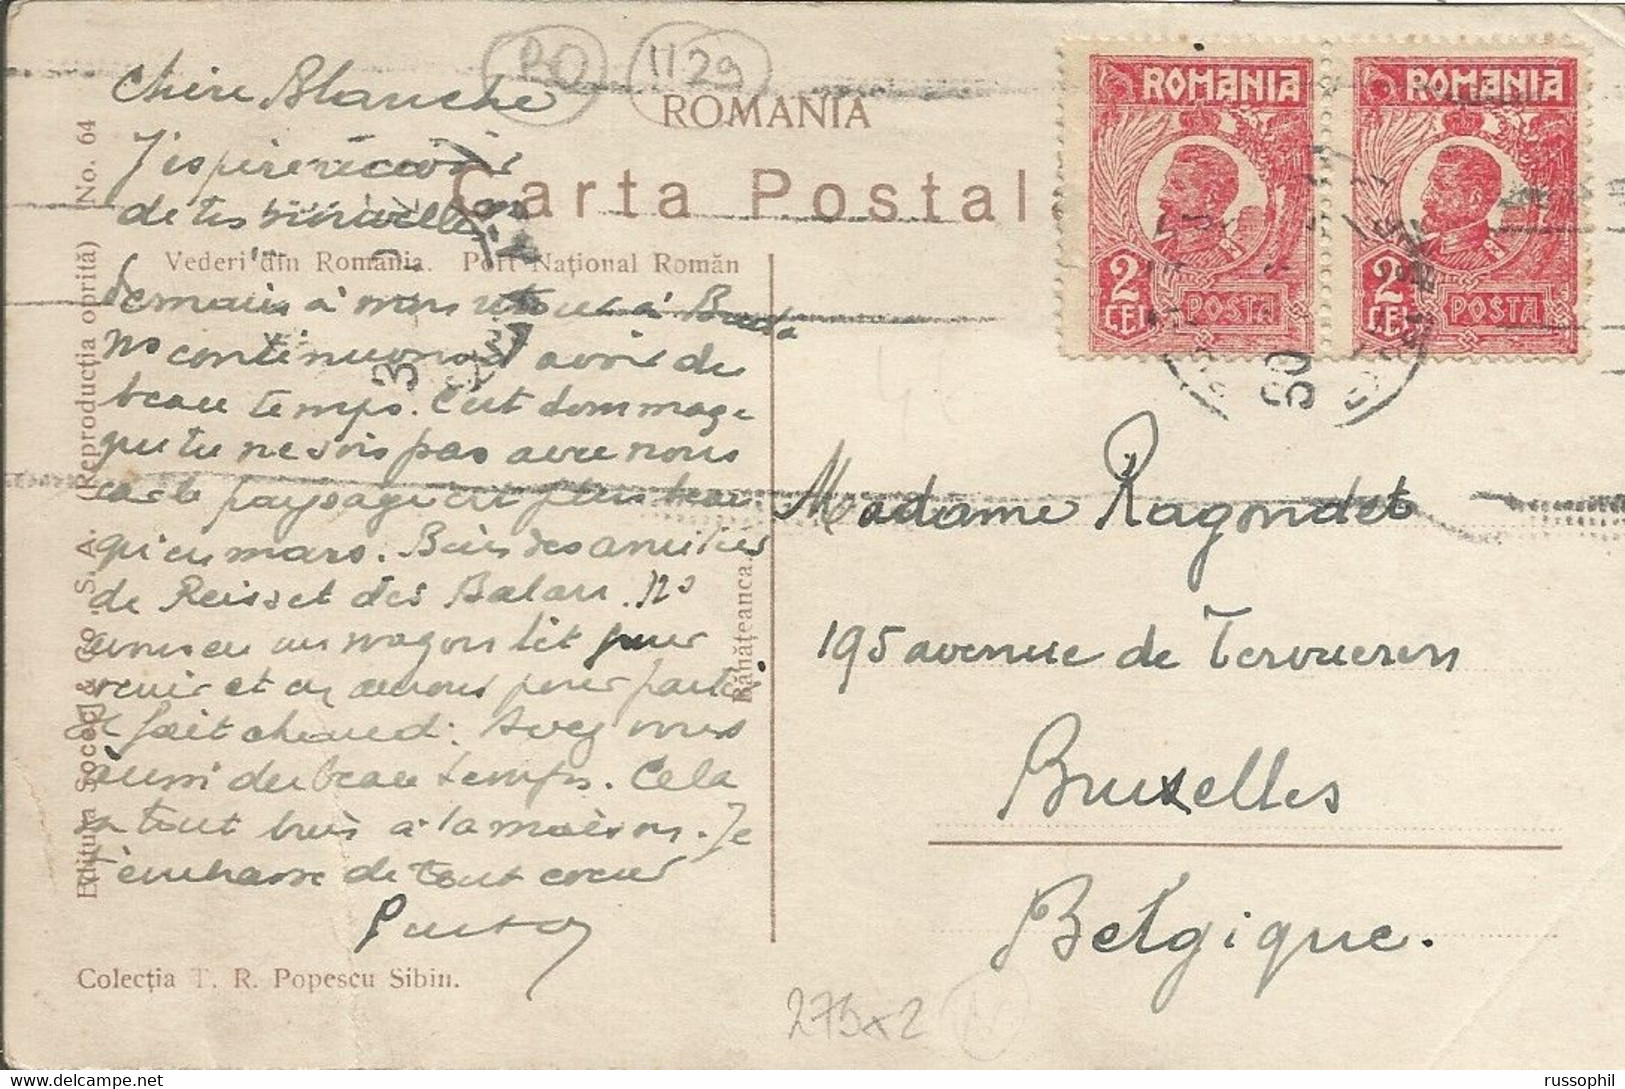 RO 1129
ROMANIA
Carta Postal
Vederi din Romania. Port Național Român
No. 64
(Reproducția oprită)
Editura Socec & Co. S. A.
Bănățeanca.
Colecția T. R. Popescu Sibiu.
ROMANIA
2 LEI POSTA
ROMANIA
2 LEI POSTA
Chère Blanche
J'espère recevoir
de tes nouvelles
demain à notre retour à
ns continuons à avoir de
beau temps. C'est dommage
que tu ne sois pas avec nous
car le paysage est plus beau
qu'en mars. Bien des amitiés
de Reisset des Balan. ns
avons eu un wagon lit pour
venir et en aurons pour partir
Il fait chaud. Avez vous
aussi du beau temps. Cela
va tout bien à la maison. Je
t'embrasse de tout coeur
Madame Ragondet
195 avenue de Tervueren
Bruxelles
Belgique.
275x2
russophil